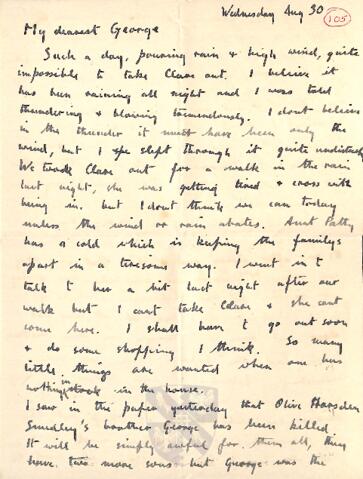 Wednesday Aug 30
105
My dearest George
Such a day, pouring rain & high wind, quite
impossible to take Clare out. I believe it
has been raining all night and I was told
thundering & blowing tremendously. I dont believe
in the thunder it must have been only the
wind, but I slept through it quite undisturbed
We took Clare out for a walk in the rain
last night, she was getting tired & cross with
being in. but I dont think we can today
unless the wind or rain abates. Aunt Patty
has a cold which is keeping the familys
apart in a tiresome way. I went in to
talk to her a bit last night after our
walk but I cant take Clare & she cant
come here. I shall have to go out soon
& do some shopping I think. So many
little things are wanted when one has
nothing in stock in the house.
I saw in the paper yesterday that Olive
Smedley's brother George has been killed.
It will be simply awful for them all, they
have two more sons but George was the